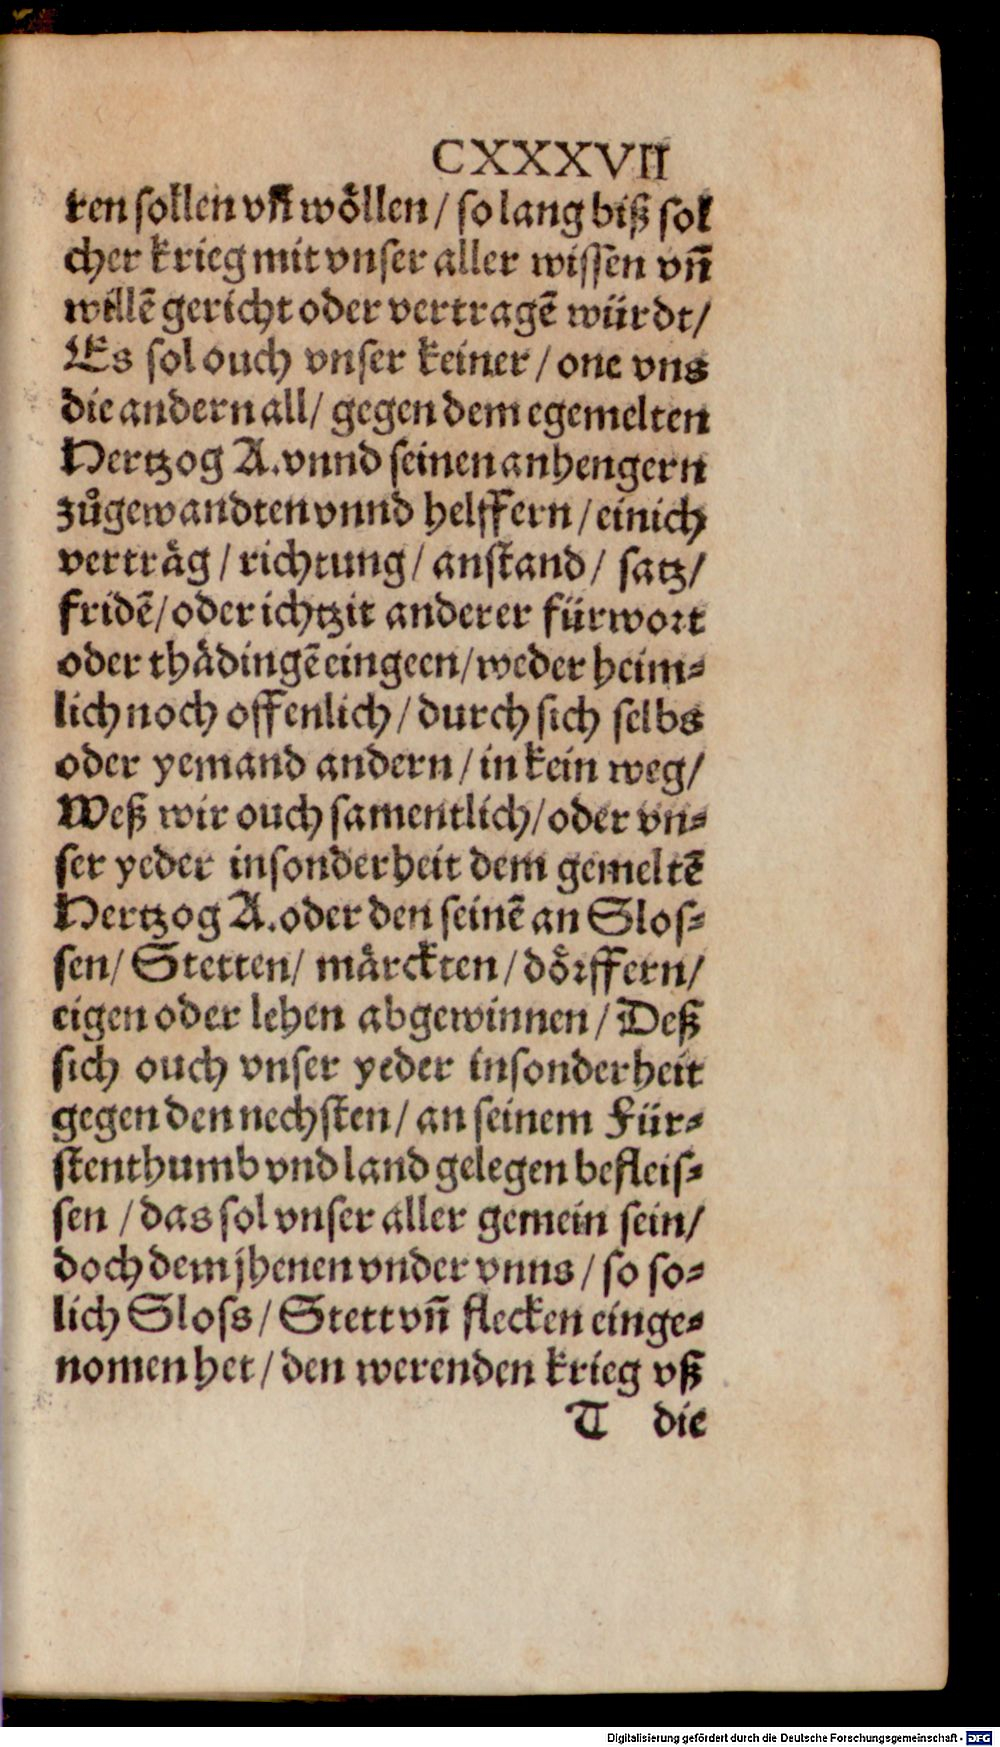 CXXXVII
ren sollen vñ wöllen / so lang biß sol
cher krieg mit vnser aller wissen vñ
willẽ gericht oder vertragẽ würdt /
Es sol ouch vnser keiner / one vns
die andern all / gegen dem egemelten
Hertzog A. vnnd seinen anhengern
zůgewandten vnnd helffern / einich
verträg / richtung / anstand / satz /
fridẽ / oder ichtzit anderer fürwort
oder thädingẽ eingeen / weder heim⸗
lich noch offenlich / durch sich selbs
oder yemand andern / in kein weg /
Weß wir ouch samentlich / oder vn⸗
ser yeder insonderheit dem gemeltẽ
Hertzog A. oder den seinẽ an Slos⸗
sen / Stetten / märckten / dörffern /
eigen oder lehen abgewinnen / Deß
sich ouch vnser yeder insonderheit
gegen den nechsten / an seinem Für⸗
stenthumb vnd land gelegen befleis⸗
sen / das sol vnser aller gemein sein /
doch dem jhenen vnder vnns / so so⸗
lich Sloss / Stett vñ flecken einge⸗
nomen het / den werenden krieg vß
T die
Digitalisierung gefördert durch die Deutsche Forschungsgemeinschaft - DFG